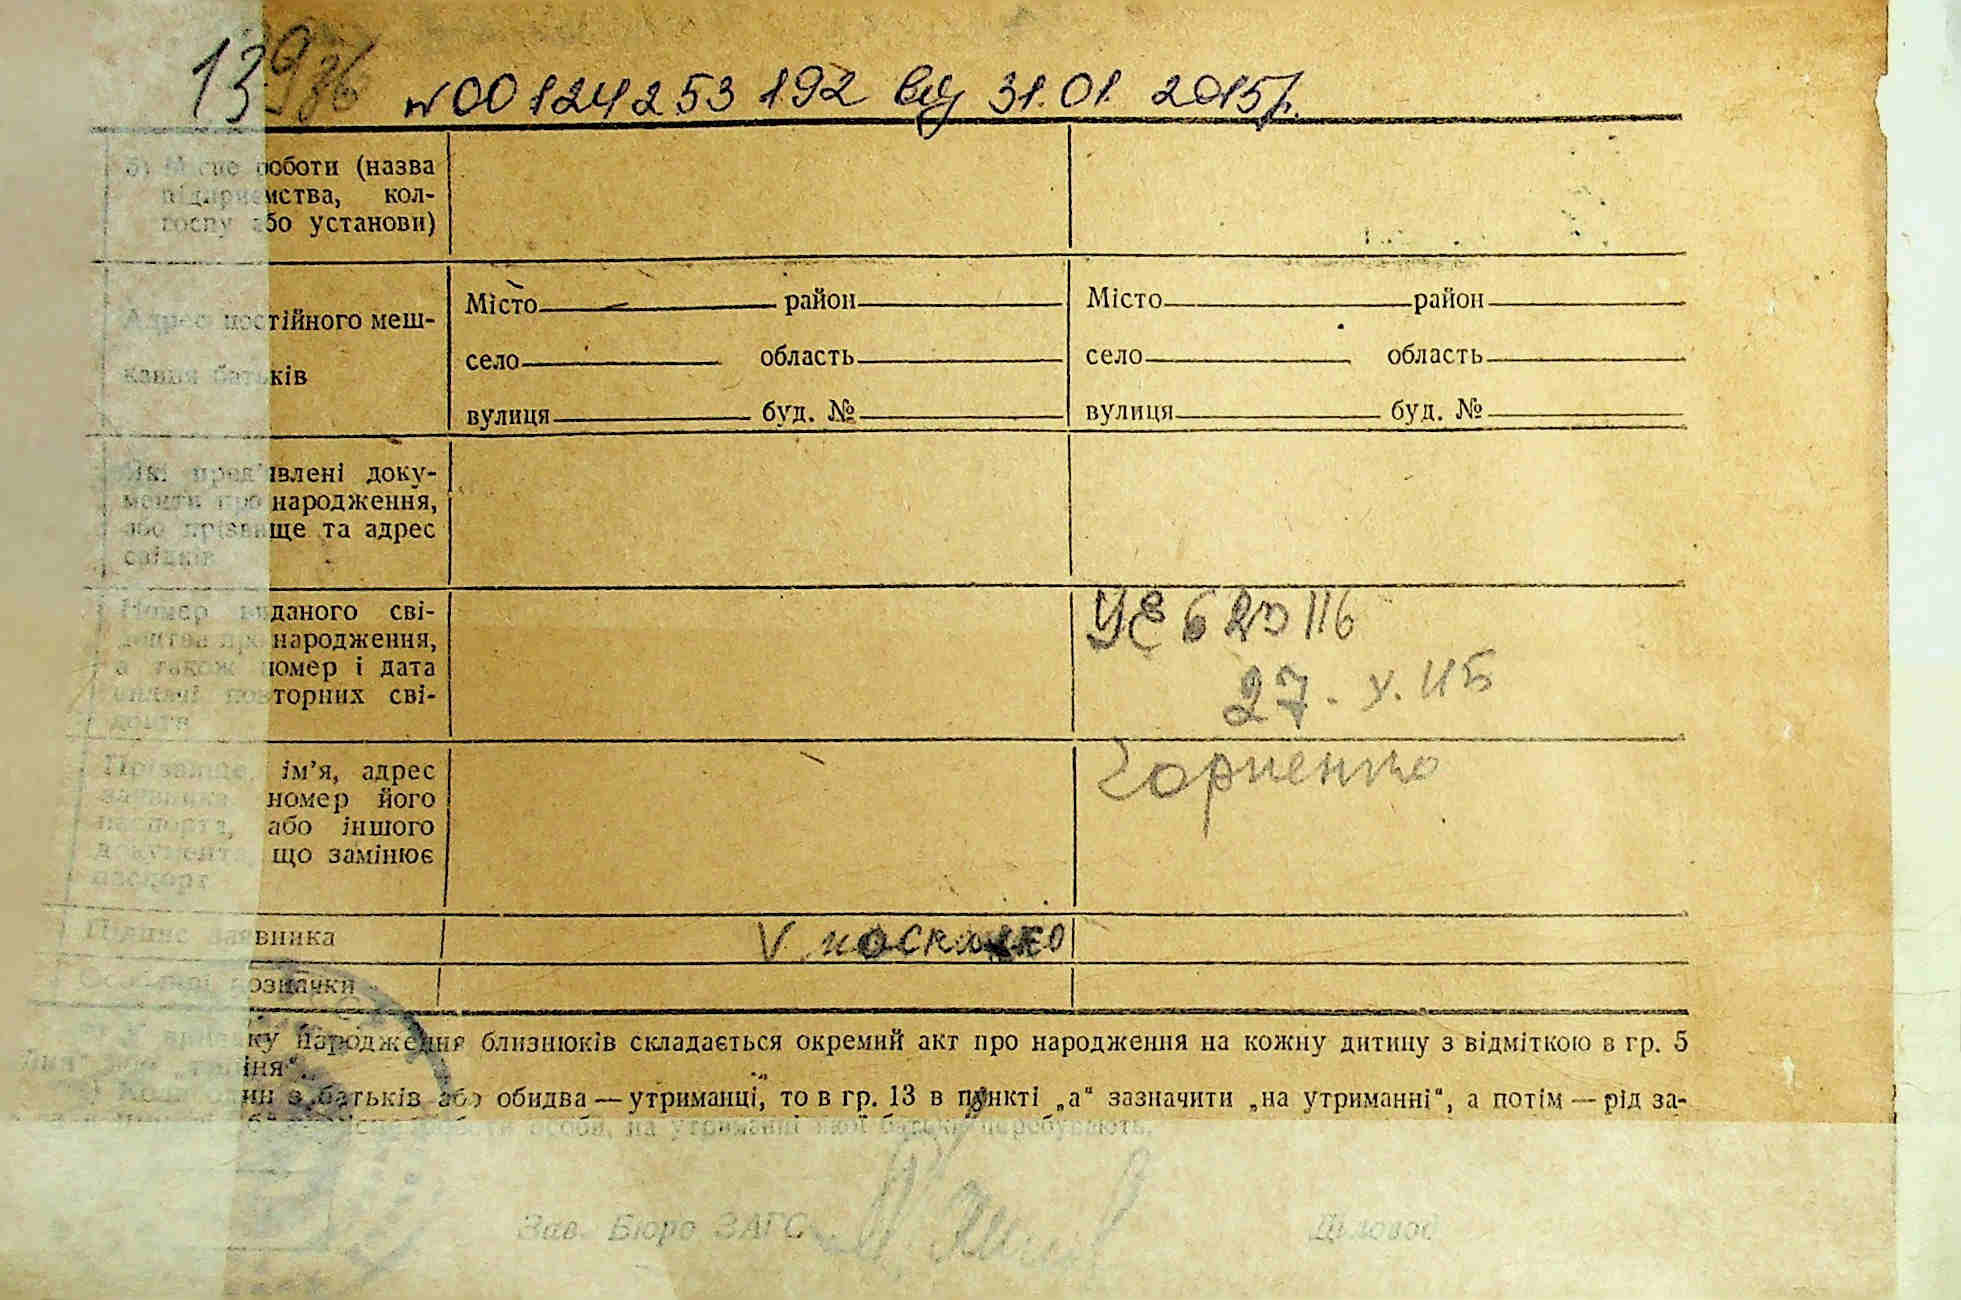 13936 № 00124253192 від 31.01.2015р.
б) Місце роботи (назва
підприємства, кол-
госпу або установи)
Адрес постійного меш-
кання батьків
Місто район
село область
вулиця буд. №
Місто район
село область
вулиця буд. №
Які пред'явлені доку-
менти про народження,
або прізвище та адрес
свідків
Номер виданого сві-
доцтва про народження,
а також номер і дата
видачі повторних сві-
доцтв
УЄ 620116
27.
Прізвище, ім’я, адрес
заявника номер його
паспорта, або іншого
документа, що замінює
паспорт
Підпис заявника
V
Особливі позначки
*) У випадку народження близнюків складається окремий акт про народження на кожну дитину з відміткою в гр. 5
Коли один з батьків або обидва — утриманці, то в гр. 13 в пункті „а“ зазначити „на утриманні“, а потім — рід за-
роботи особи, на утриманні якої батьки перебувають.
Зав. Бюро ЗАГС
Діловод